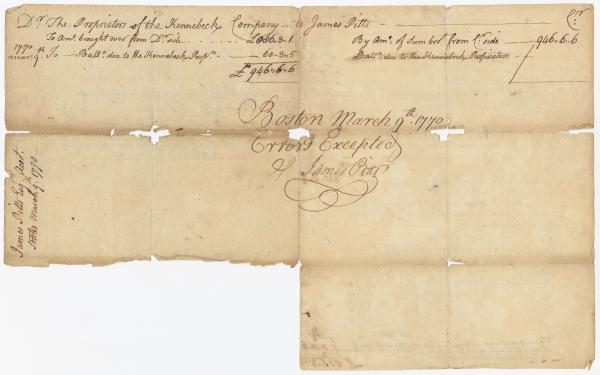 Dr. The Proprietors of the Kennebeck Company - to James Pitts - Cr.
To Amt. brought over from Dr. side - - - £886-3-1
By Amt. of Sum brot. from Cr. side - 946-6-6
1770 March 9th. To - Ballce. due to the Kennebeck Proprs. - 60-3-5
Ballce. due to the Kennebeck Proprietors
£946-6-6
Boston March 9th. 1770
Errors Excepted
James Pitts
James Pitts Esq. Acct.
March 9th. 1770